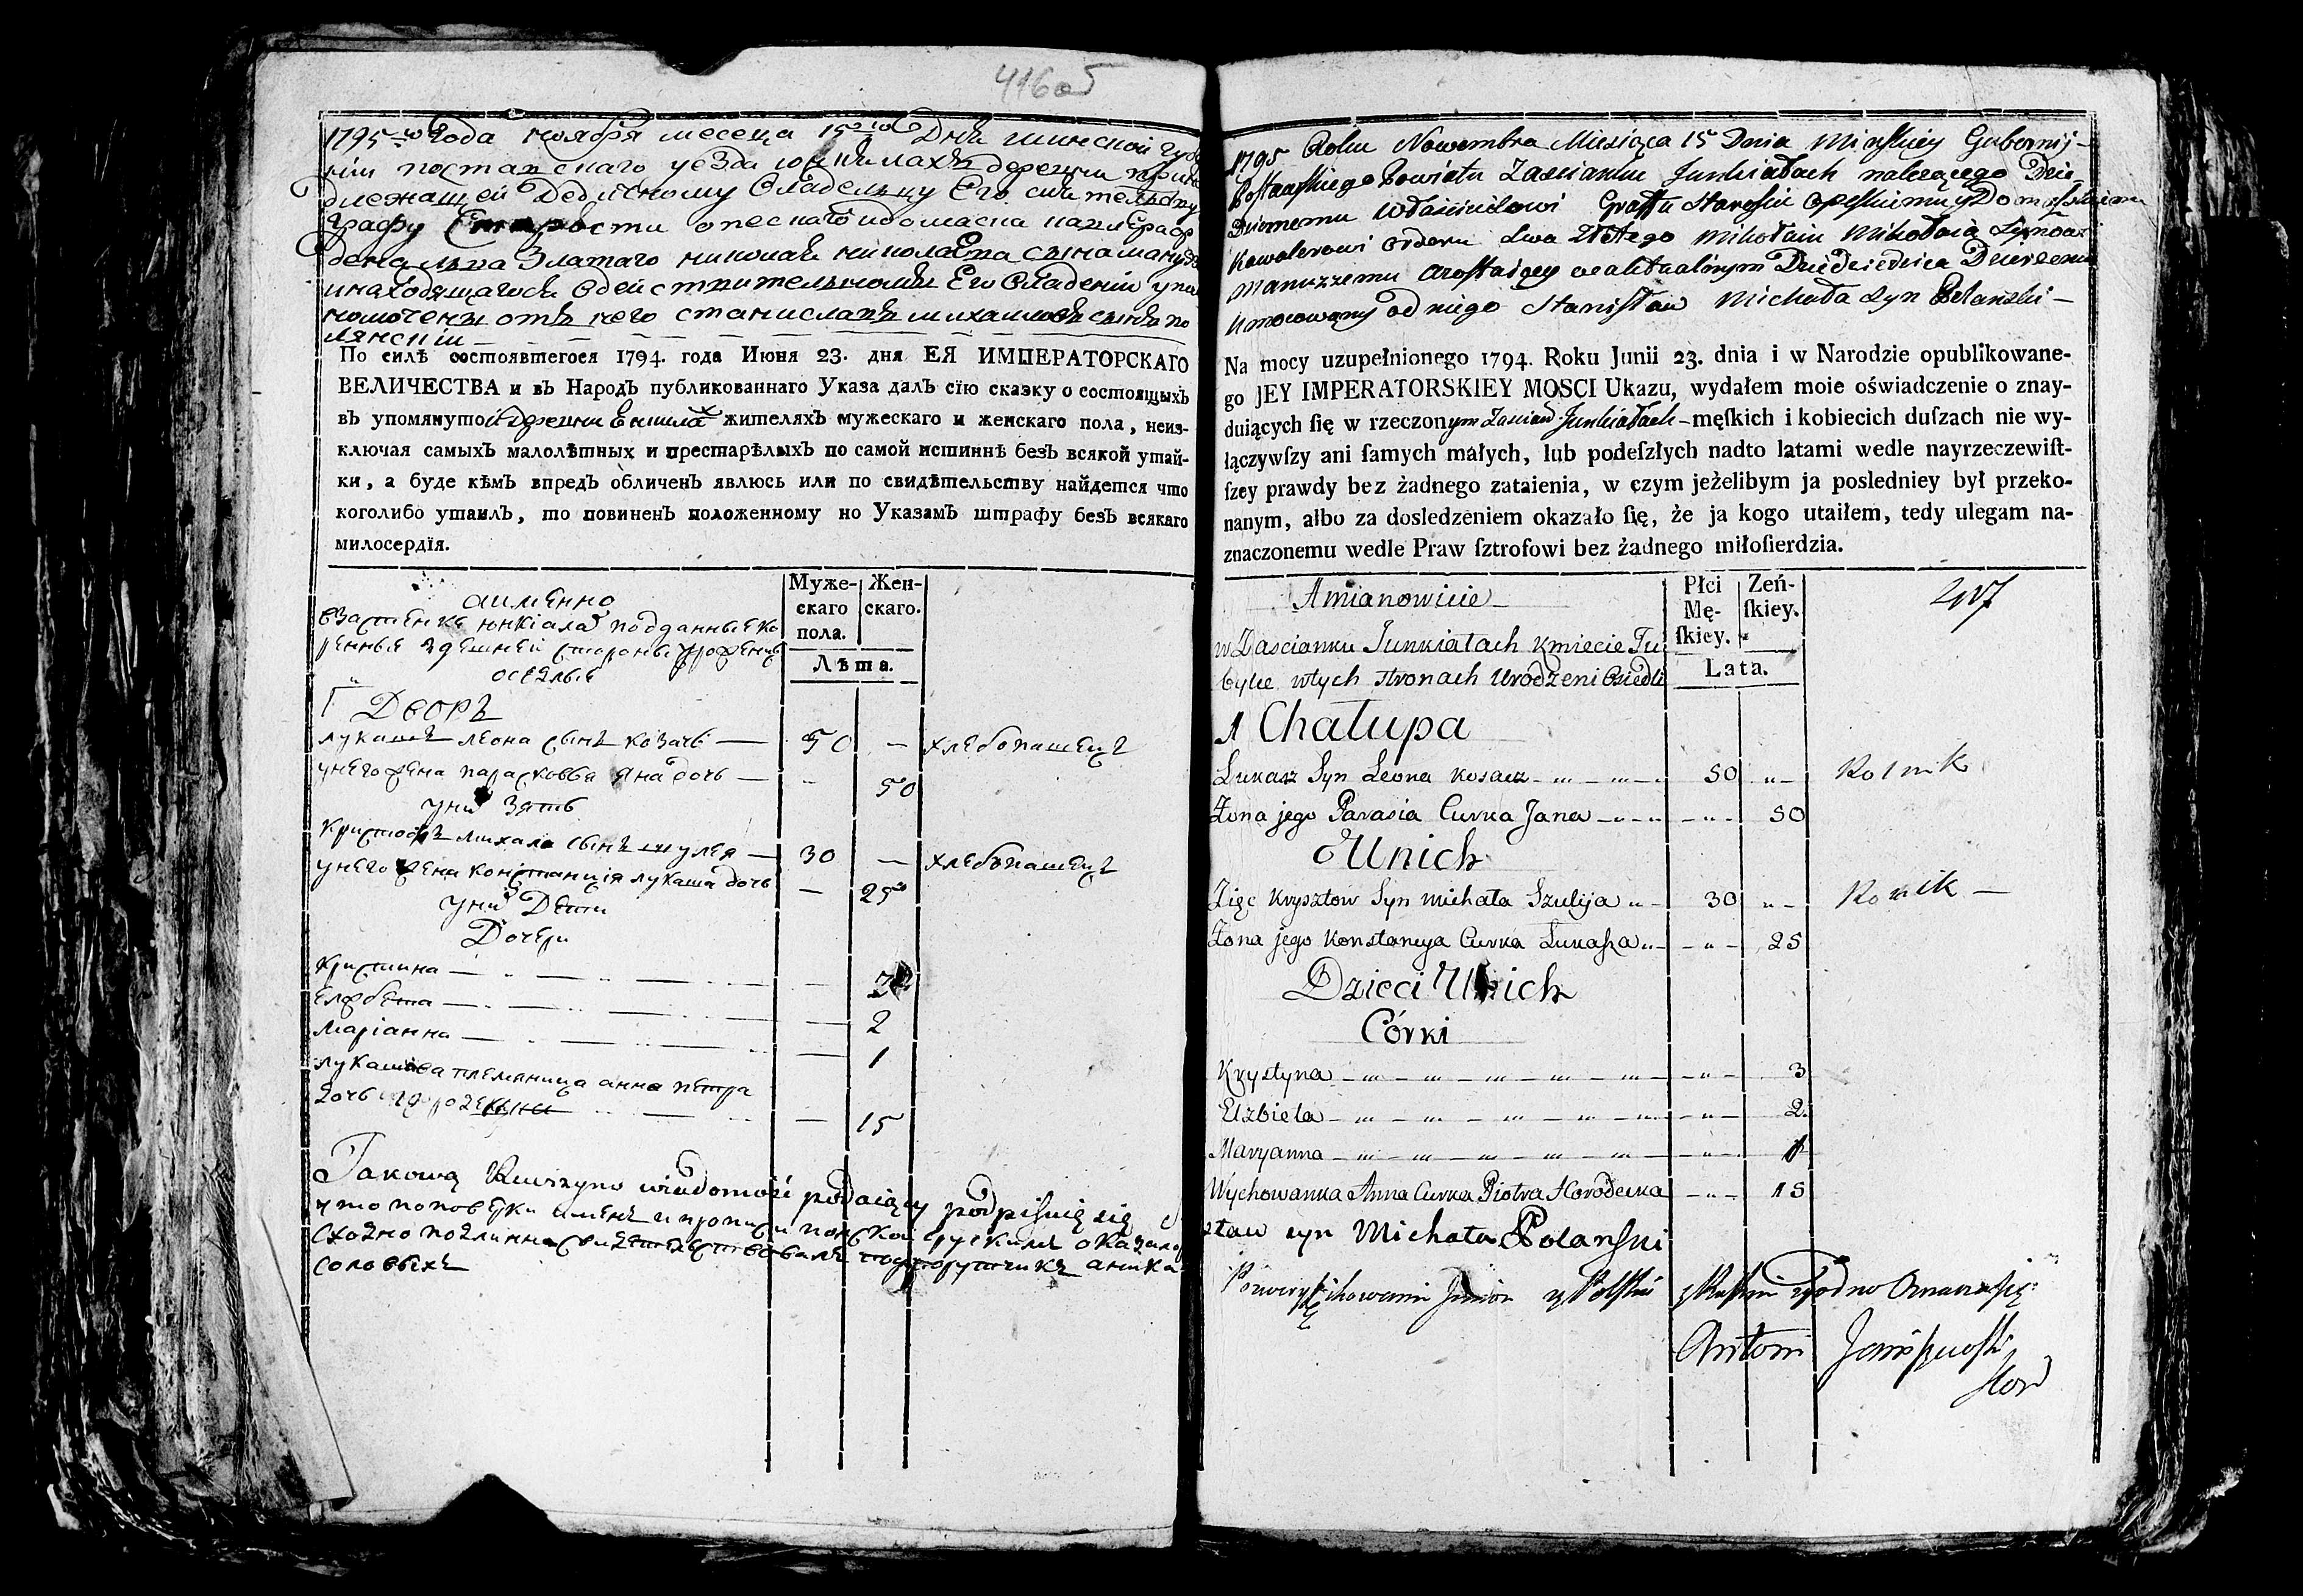 416об
1795-го года ноября месеца 15-го Дня минской губе
нии поставскаго уезда юнкилахъ деревни прина
длежащей Дедичному Владельцу Его сиятельству
Графу Старости опескаго
Златаго николая николаева сына мануз
инаходящагося вдействительномъ Его Владении упа
номочены отъ него станиславъ михаиловъ сынъ по
лянский
По силѣ состоявшегося 1794. года Июня 23. дня ЕЯ ИМПЕРАТОРСКАГО
ВЕЛИЧЕСТВА и въ Народъ публикованнаго Указа далъ сїю сказку о состоящыхъ
въ упомянутой деревни жителяхъ мужескаго и женскаго пола, неиз-
ключая самыхъ малолѣтныхъ и престарѣлыхъ по самой истиннѣ безъ всякой утай-
ки, а буде кѣмъ впредъ обличенъ явлюсь или по свидѣтельству найдется что
коголибо утаилъ, то повиненъ положенному по Указамъ штрафу безъ всякаго
милосердїя.
аименно
Муже-скаго пола. Жен-скаго.
Лѣта.
взастенке юнкіалах подданные ко
ренные здешней стороны урожденцы
оселые
1 Дворъ
лукашъ леона сынъ козачь — 50 — хлебопашецъ
унего жена парасковья яна дочь — 50
уних зять
Криштофъ михала сынъ шулея — 30 — хлебопашецъ
унего жена констанція лукаша дочь — 25
уних Дети
Дочери
Кристина — 3
Елжбета — 2
Маріанна — 1
лукашова племяница анна петра
дочь — 15
Takową Rewizyną wiadomość podaiący podpisuię się
что поповерки имянъ и прописи польской с рускимъ оказалось
сходно подлинно свидетельствовалъ подпорутчикъ аника
соловьихъ
1795 Roku Nowembra Miesiąca 15 Dnia Minskiey Gubernij
Postawskiego Powiatu Zascianku Junkiałach należącego Dzie-
Dzicznemu Właścicielowi Graffu Staroście Opeskiemu y
Kawalerowi Orderu Lwa Złotego Mikołaiu Mikołaia Synowi
Manuzzemu Dziedzica Dzierżeniu
Umocowany od niego Stanisław Michała Syn Polanski —
Na mocy uzupełnionego 1794. Roku Junii 23. dnia i w Narodzie opublikowane-
go JEY IMPERATORSKIEY MOSCI Ukazu, wydałem moie oświadczenie o znay-
duiących ſię w rzeczonym Zascian. Junkiałach – męſkich i kobiecich duſzach nie wy-
łączywſzy ani ſamych małych, lub podeſzłych nadto latami wedle nayrzeczewiſt-
ſzey prawdy bez żadnego zataienia, w czym jeżelibym ja posledniey był przeko-
nanym, albo za dosledzeniem okazało ſię, że ja kogo utaiłem, tedy ulegam na-
znaczonemu wedle Praw ſztrofowi bez żadnego miłoſierdzia.
Amianowicie
Płci Mę-ſkiey. Zeń-ſkiey.
417
Lata.
w Zascianku Junkiałach Kmiecie Tu
bylce wtych stronach Urodzeni Osiedli
1 Chałupa
Łukasz Syn Leona Kosacz — 50 — Rolnik
Żona jego Parasia Curka Jana — 50
U nich
Zięć Krysztow Syn Michała Szulija — 30 — Rolnik —
Żona jego Konstancya Curka Łukasza — 25
Dzieci U nich
Córki
Krystyna — 3
Elzbieta — 2
Maryanna — 1
Wychowanka Anna Curka Piotra Horodecka — 15
sław syn Michała Polanski
Antoni